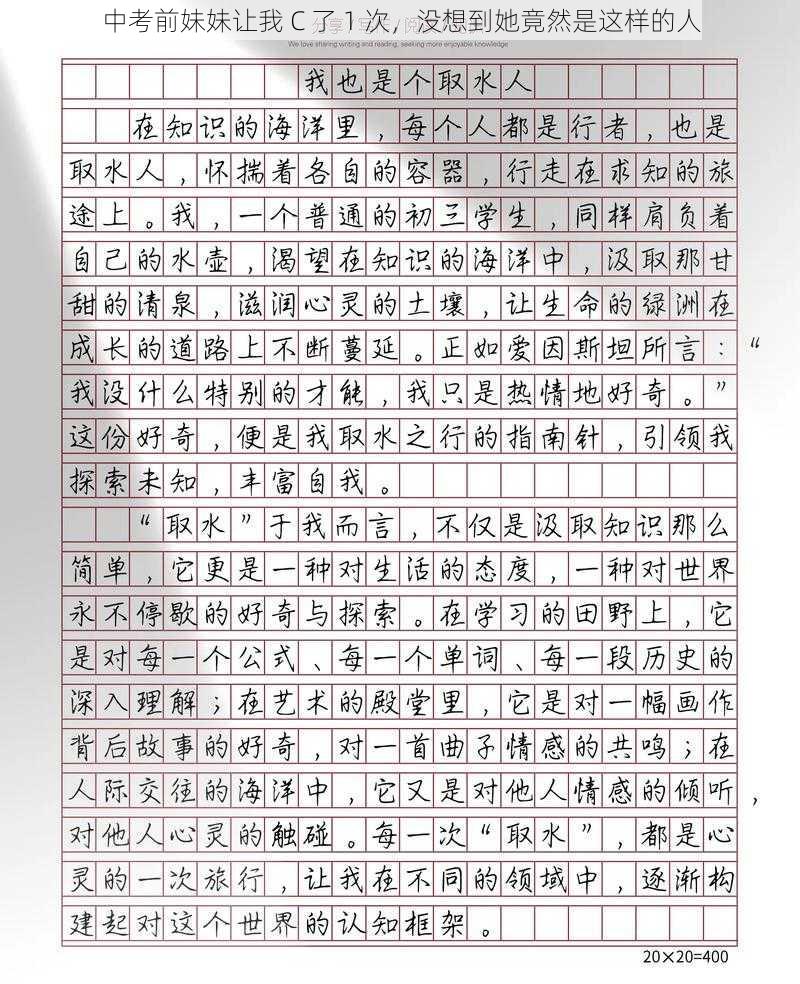 中考前妹妹让我 C 了 1 次，没想到她竟然是这样的人
We love sharing writing and reading, seeking more enjoyable knowledge
我也是个取水人
在知识的海洋里，每个人都是行者，也是
取水人，怀揣着各自的容器，行走在求知的旅
途上。我，一个普通的初三学生，同样肩负着
自己的水壶，渴望在知识的海洋中，汲取那甘
甜的清泉，滋润心灵的土壤，让生命的绿洲在
成长的道路上不断蔓延。正如爱因斯坦所言：“
我没什么特别的才能，我只是热情地好奇。”
这份好奇，便是我取水之行的指南针，引领我
探索未知，丰富自我。
“取水”于我而言，不仅是汲取知识那么
简单，它更是一种对生活的态度，一种对世界
永不停歇的好奇与探索。在学习的田野上，它
是对每一个公式、每一个单词、每一段历史的
深入理解；在艺术的殿堂里，它是对一幅画作
背后故事的好奇，对一首曲子情感的共鸣；在
人际交往的海洋中，它又是对他人情感的倾听，
对他人心灵的触碰。每一次“取水”，都是心
灵的一次旅行，让我在不同的领域中，逐渐构
建起对这个世界的认知框架。
20×20=400